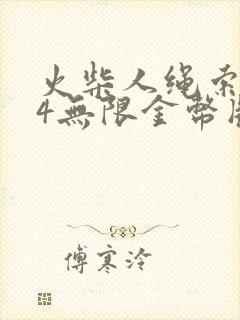 火柴人绳索
4無限金幣版
傅寒泠